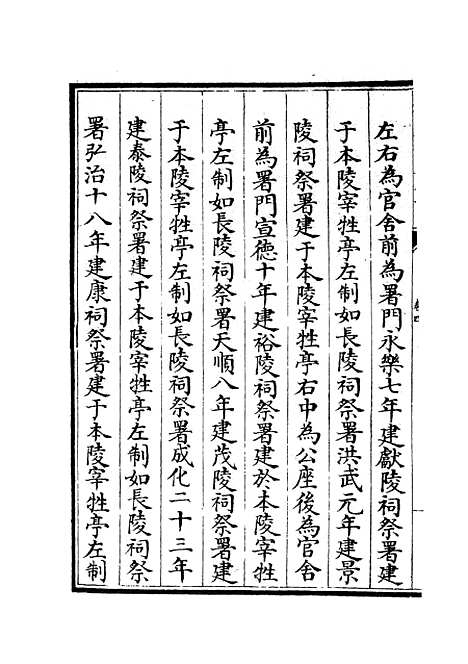 左右為官舍前為署門永樂七年建獻陵祠祭署建
于本陵宰牲亭左制如長陵祠祭署洪武元年建景
陵祠祭署建于本陵宰牲亭右中為公座後為官舍
前為署門宣德十年建裕陵祠祭署建於本陵宰牲
亭左制如長陵祠祭署天順八年建茂陵祠祭署建
于本陵宰牲亭左制如長陵祠祭署成化二十三年
建泰陵祠祭署建于本陵宰牲亭左制如長陵祠祭
署弘治十八年建康祠祭署建于本陵宰牲亭左制